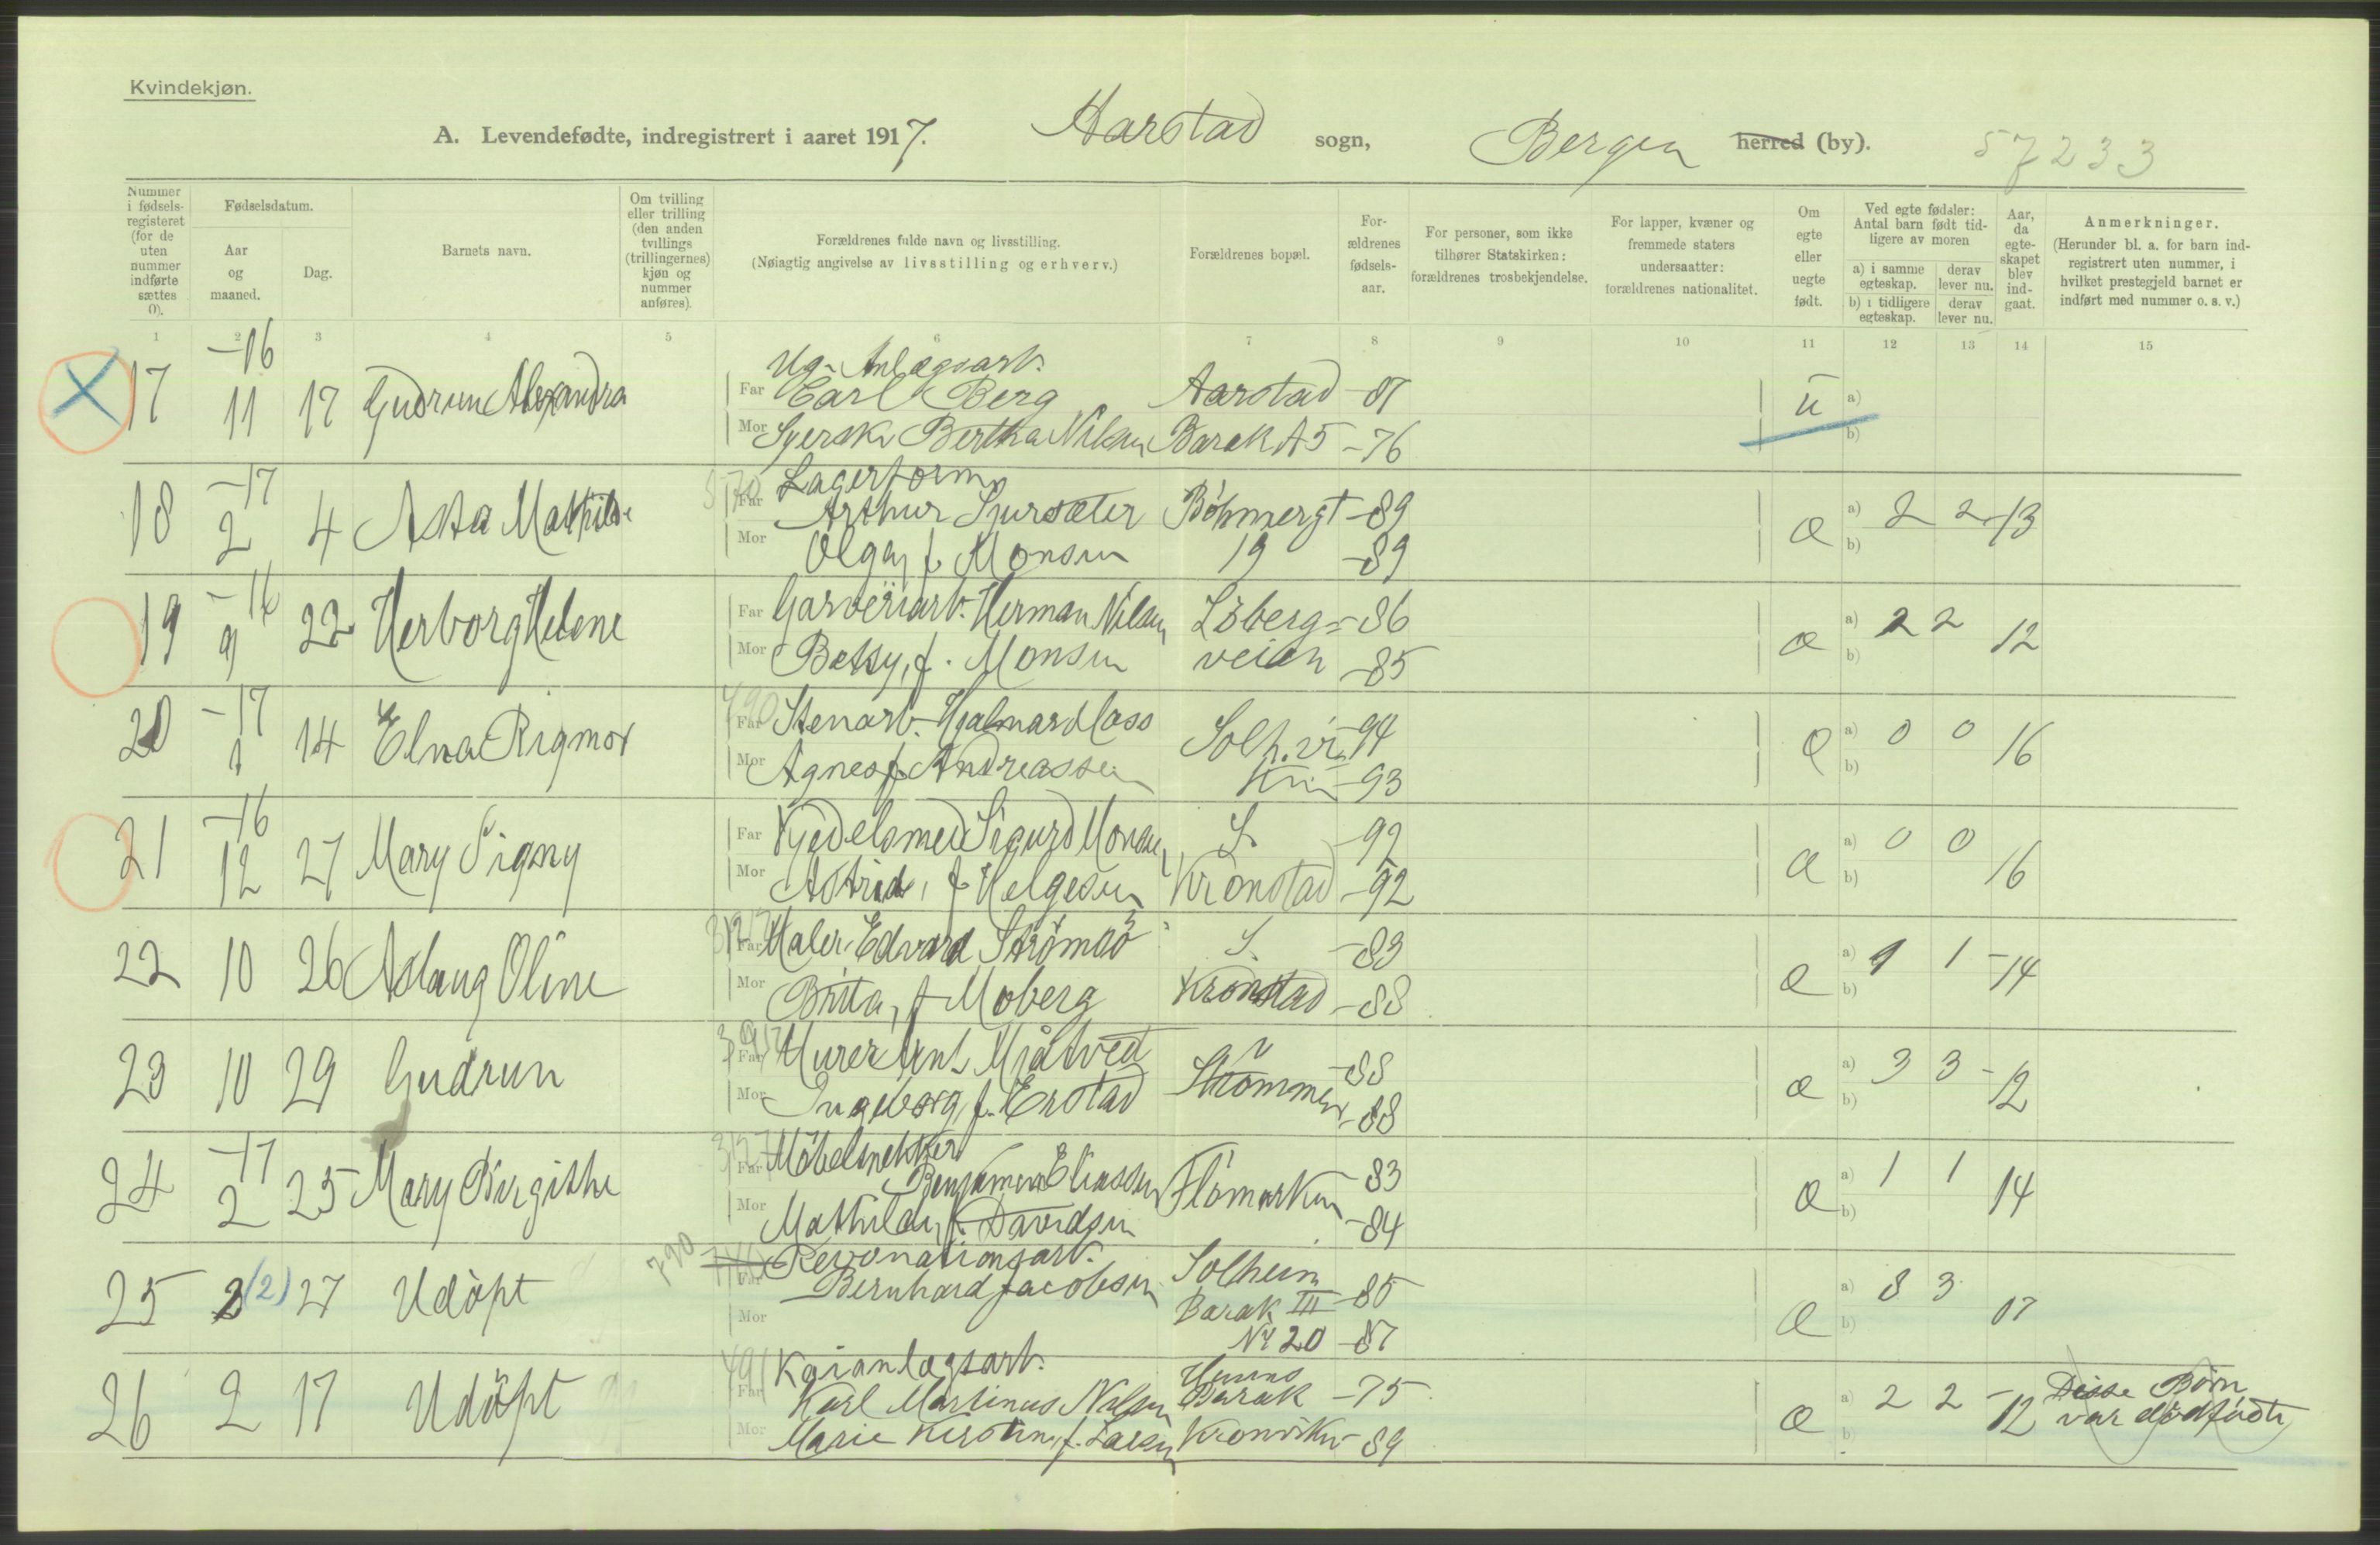 Kvindekjøn.
A. Levendefødte, indregistrert i aaret 1917. Aarstad sogn, Bergen herred (by). 57233
Nummer i fødsels-registeret (for de uten nummer indførte sættes 0).
Fødselsdatum.
Aar og maaned.
Dag.
Barnets navn.
Om tvilling eller trilling (den anden tvillings (trillingernes) kjøn og nummer anføres).
Forældrenes fulde navn og livsstilling.
(Nøiagtig angivelse av livsstilling og erhverv.)
Forældrenes bopæl.
For-ældrenes fødsels-aar.
For personer, som ikke tilhører Statskirken: forældrenes trosbekjendelse.
For lapper, kvæner og fremmede staters undersaatter: forældrenes nationalitet.
Om egte eller uegte født.
Ved egte fødsler: Antal barn født tid-ligere av moren
a) i samme egteskap.
derav lever nu.
b) i tidligere egteskap.
derav lever nu.
Aar, da egte-skapet blev ind-gaat.
Anmerkninger.
(Herunder bl. a. for barn ind-registrert uten nummer, i hvilket prestegjeld barnet er indført med nummer o. s. v.)
1 2 3 4 5 6 7 8 9 10 11 12 13 14 15
-16 Ug. Anlægsarb.
17 11 17 Gudrun Alexandra Far Carl Berg Aarstad -87 u a)
Mor Syersk. Bertha Nilsen Barak A5 -76 b)
-17 Lagerform.
18 2 4 Asta Mathilde Far Arthur Sjursæter Böhmergt -89 a) 2 2 -13
Mor Olga, f. Monsen 19 -89 b)
-16
19 9 22 Herborg Helene Far Garveriarb. Herman Nilsen Löberg= -86 a) 2 2 12
Mor Betsy, f. Monsen veien -85 b)
-17 490
20 1 14 Elna Rigmor Far Stenarb. Hjalmar Solh.v. -94 a) 0 0 16
Mor Agnes f. Andreassen -93 b)
-16
21 12 27 Mary Signy Far Kjedelsmed Sigurd Monsen S. -92 a) 0 0 16
Mor Astrid, f. Helgesen Kronstad -92 b)
22 10 26 Aslaug Oline Far Maler Edvard Strömsö S. -83 a) 1 1 -14
Mor Brita, f. Moberg Kronstad -88 b)
23 10 29 Gudrun Far Murer Mjåtvedt Strömmen -88 a) 3 3 -12
Mor Ingeborg, f. Erstad -88 b)
-17 Möbelsnekker
24 2 25 Mary Birgithe Far Benjamin Eliassen Flömarken -83 a) 1 1 14
Mor Mathilde, f. Davidsen -84 b)
790 Solheim
25 2 (2) 27 Udöpt Far Bernhard Jacobsen Barak III -85 a) 3 3 07
Mor No 20 -87 b)
491 Kaianlægsarb.
26 2 17 Udöpt Far Karl Martinus Nilsen Barak -75 a) 2 2 -12 Disse Börn
Mor Marie Kirstine, f. Larsen -89 b) var dödfödte